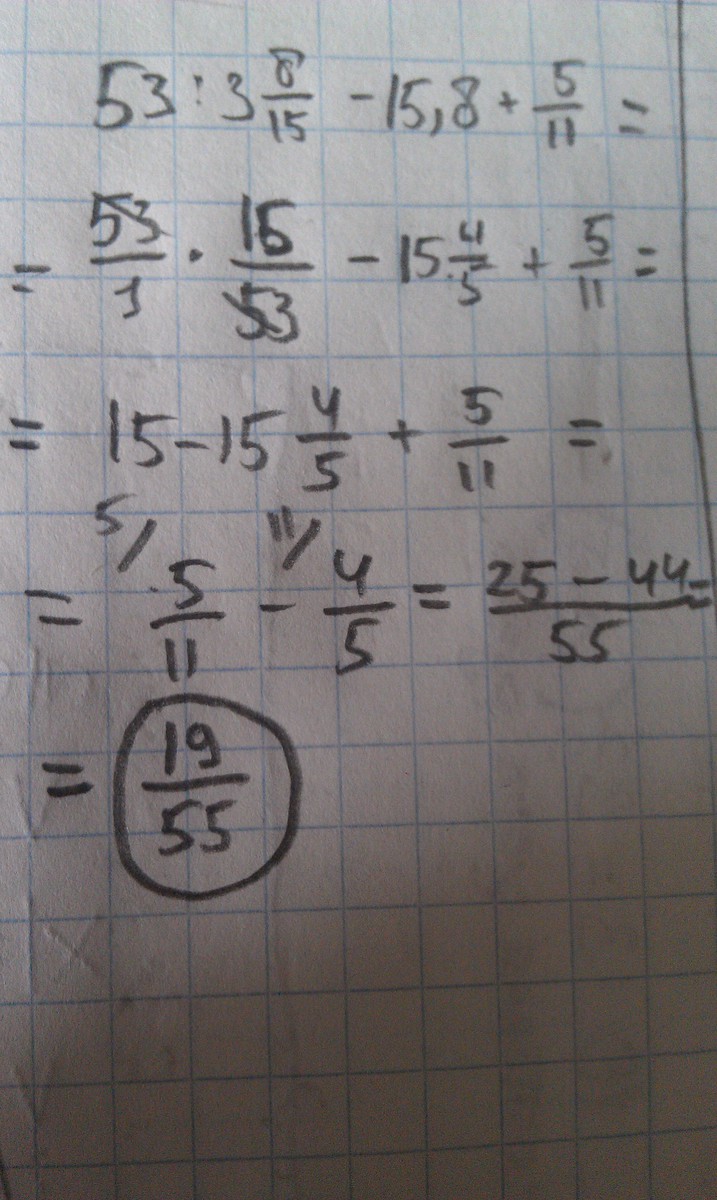 53 : 3 8/15 - 15,8 + 5/11 =
= 53/1 · 15/53 - 15 4/5 + 5/11 =
= 15 - 15 4/5 + 5/11 =
5/ 11/
= 5/11 - 4/5 = 25 - 44/55 =
= 19/55